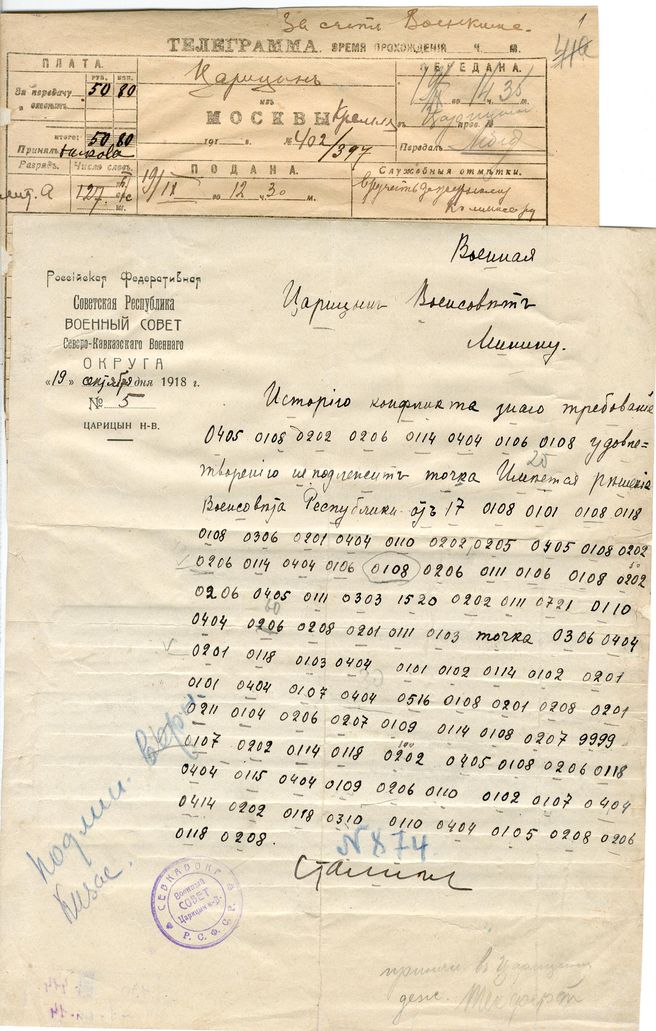 За счетъ Военкома.
1
ТЕЛЕГРАММА. ВРЕМЯ ПРОХОЖДЕНІЯ Ч. М.
ПЛАТА.
РУБ. КОП.
За передачу
50 80
ИТОГО: 50 80
Принялъ
Разрядъ. Число словъ.
А 127
Царицынъ
изъ
МОСКВЫ Кремля
191 г. № 402/397
ПОДАНА.
19/X по 12 ч. 30 м.
ПЕРЕДАНА.
14 ч. 35
Передалъ
Служебныя отмѣтки.
Россійская Федеративная
Совѣтская Республика
ВОЕННЫЙ СОВѢТ
Сѣверо-Кавказскаго Военнаго
ОКРУГА
«19» октября дня 1918 г.
№ 5
ЦАРИЦЫН Н-В.
Военная
Царицын Военсовѣтъ
Минину.
Исторію конфликта знаю требованіе
0405 0108 0202 0206 0114 0404 0106 0108 удовле-
творенію не подлежитъ точка Имѣется рѣшенія
20
Военсовѣта Республики отъ 17 0108 0101 0108 0118
0108 0306 0201 0404 0110 0202 0205 0405 0108 0202
0206 0114 0404 0106 0108 0206 0111 0106 0108 0202
0206 0405 0111 0303 1520 0202 0111 0721 0110
0404 0206 0208 0201 0111 0103 точка 0306 0404
0201 0118 0103 0404 0101 0102 0114 0102 0201
0101 0404 0107 0404 0516 0108 0201 0208 0201
0211 0104 0206 0207 0109 0114 0108 0207 9999
0107 0202 0114 0118 0202 0405 0108 0206 0118
100
0404 0115 0404 0109 0206 0110 0102 0107 0404
0414 0202 0118 0310 0110 0404 0105 0208 0206
0118 0208.
N 874
Сталинъ
подлин. вѣрн
Военный
СОВЕТ
Царицын н-В.
Р. С. Ф. С. Р.